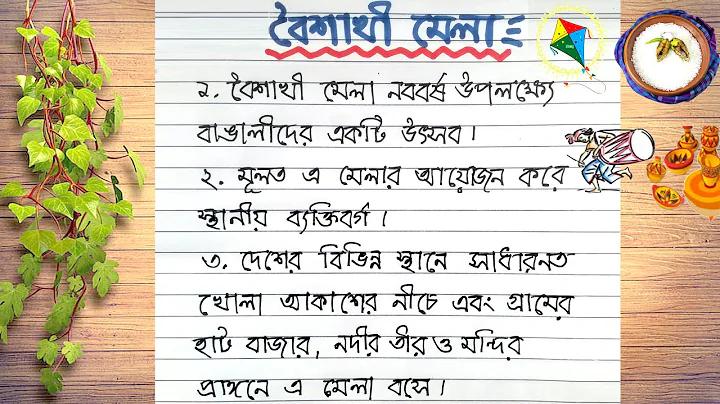 বৈশাখী মেলা
১. বৈশাখী মেলা নববর্ষ উপলক্ষ্যে
বাঙালীদের একটি উৎসব।
২. মূলত এ মেলার আয়োজন করে
স্থানীয় ব্যক্তিবর্গ।
৩. দেশের বিভিন্ন স্থানে সাধারনত
খোলা আকাশের নীচে এবং গ্রামের
হাট বাজার, নদীর তীর ও মন্দির
প্রাঙ্গনে এ মেলা বসে।